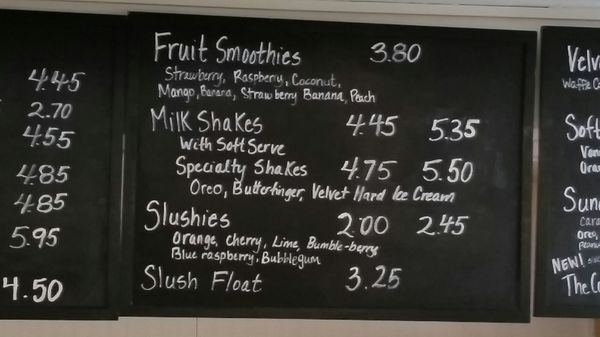 4.45
2.70
4.55
4.85
4.85
5.95
4.50
Fruit Smoothies 3.80
Strawberry, Raspberry, Coconut,
Mango, Banana, Strawberry Banana, Peach
Milk Shakes 4.45 5.35
With Soft Serve
Specialty Shakes 4.75 5.50
Oreo, Butterfinger, Velvet Hard Ice Cream
Slushies 2.00 2.45
Orange, Cherry, Lime, Bumble-berry
Blue raspberry, Bubblegum
Slush Float 3.25
Velve
Waffle Co
Soft
Van
Oran
Sun
Cara
Oreo,
Peanu
NEW!
The Co